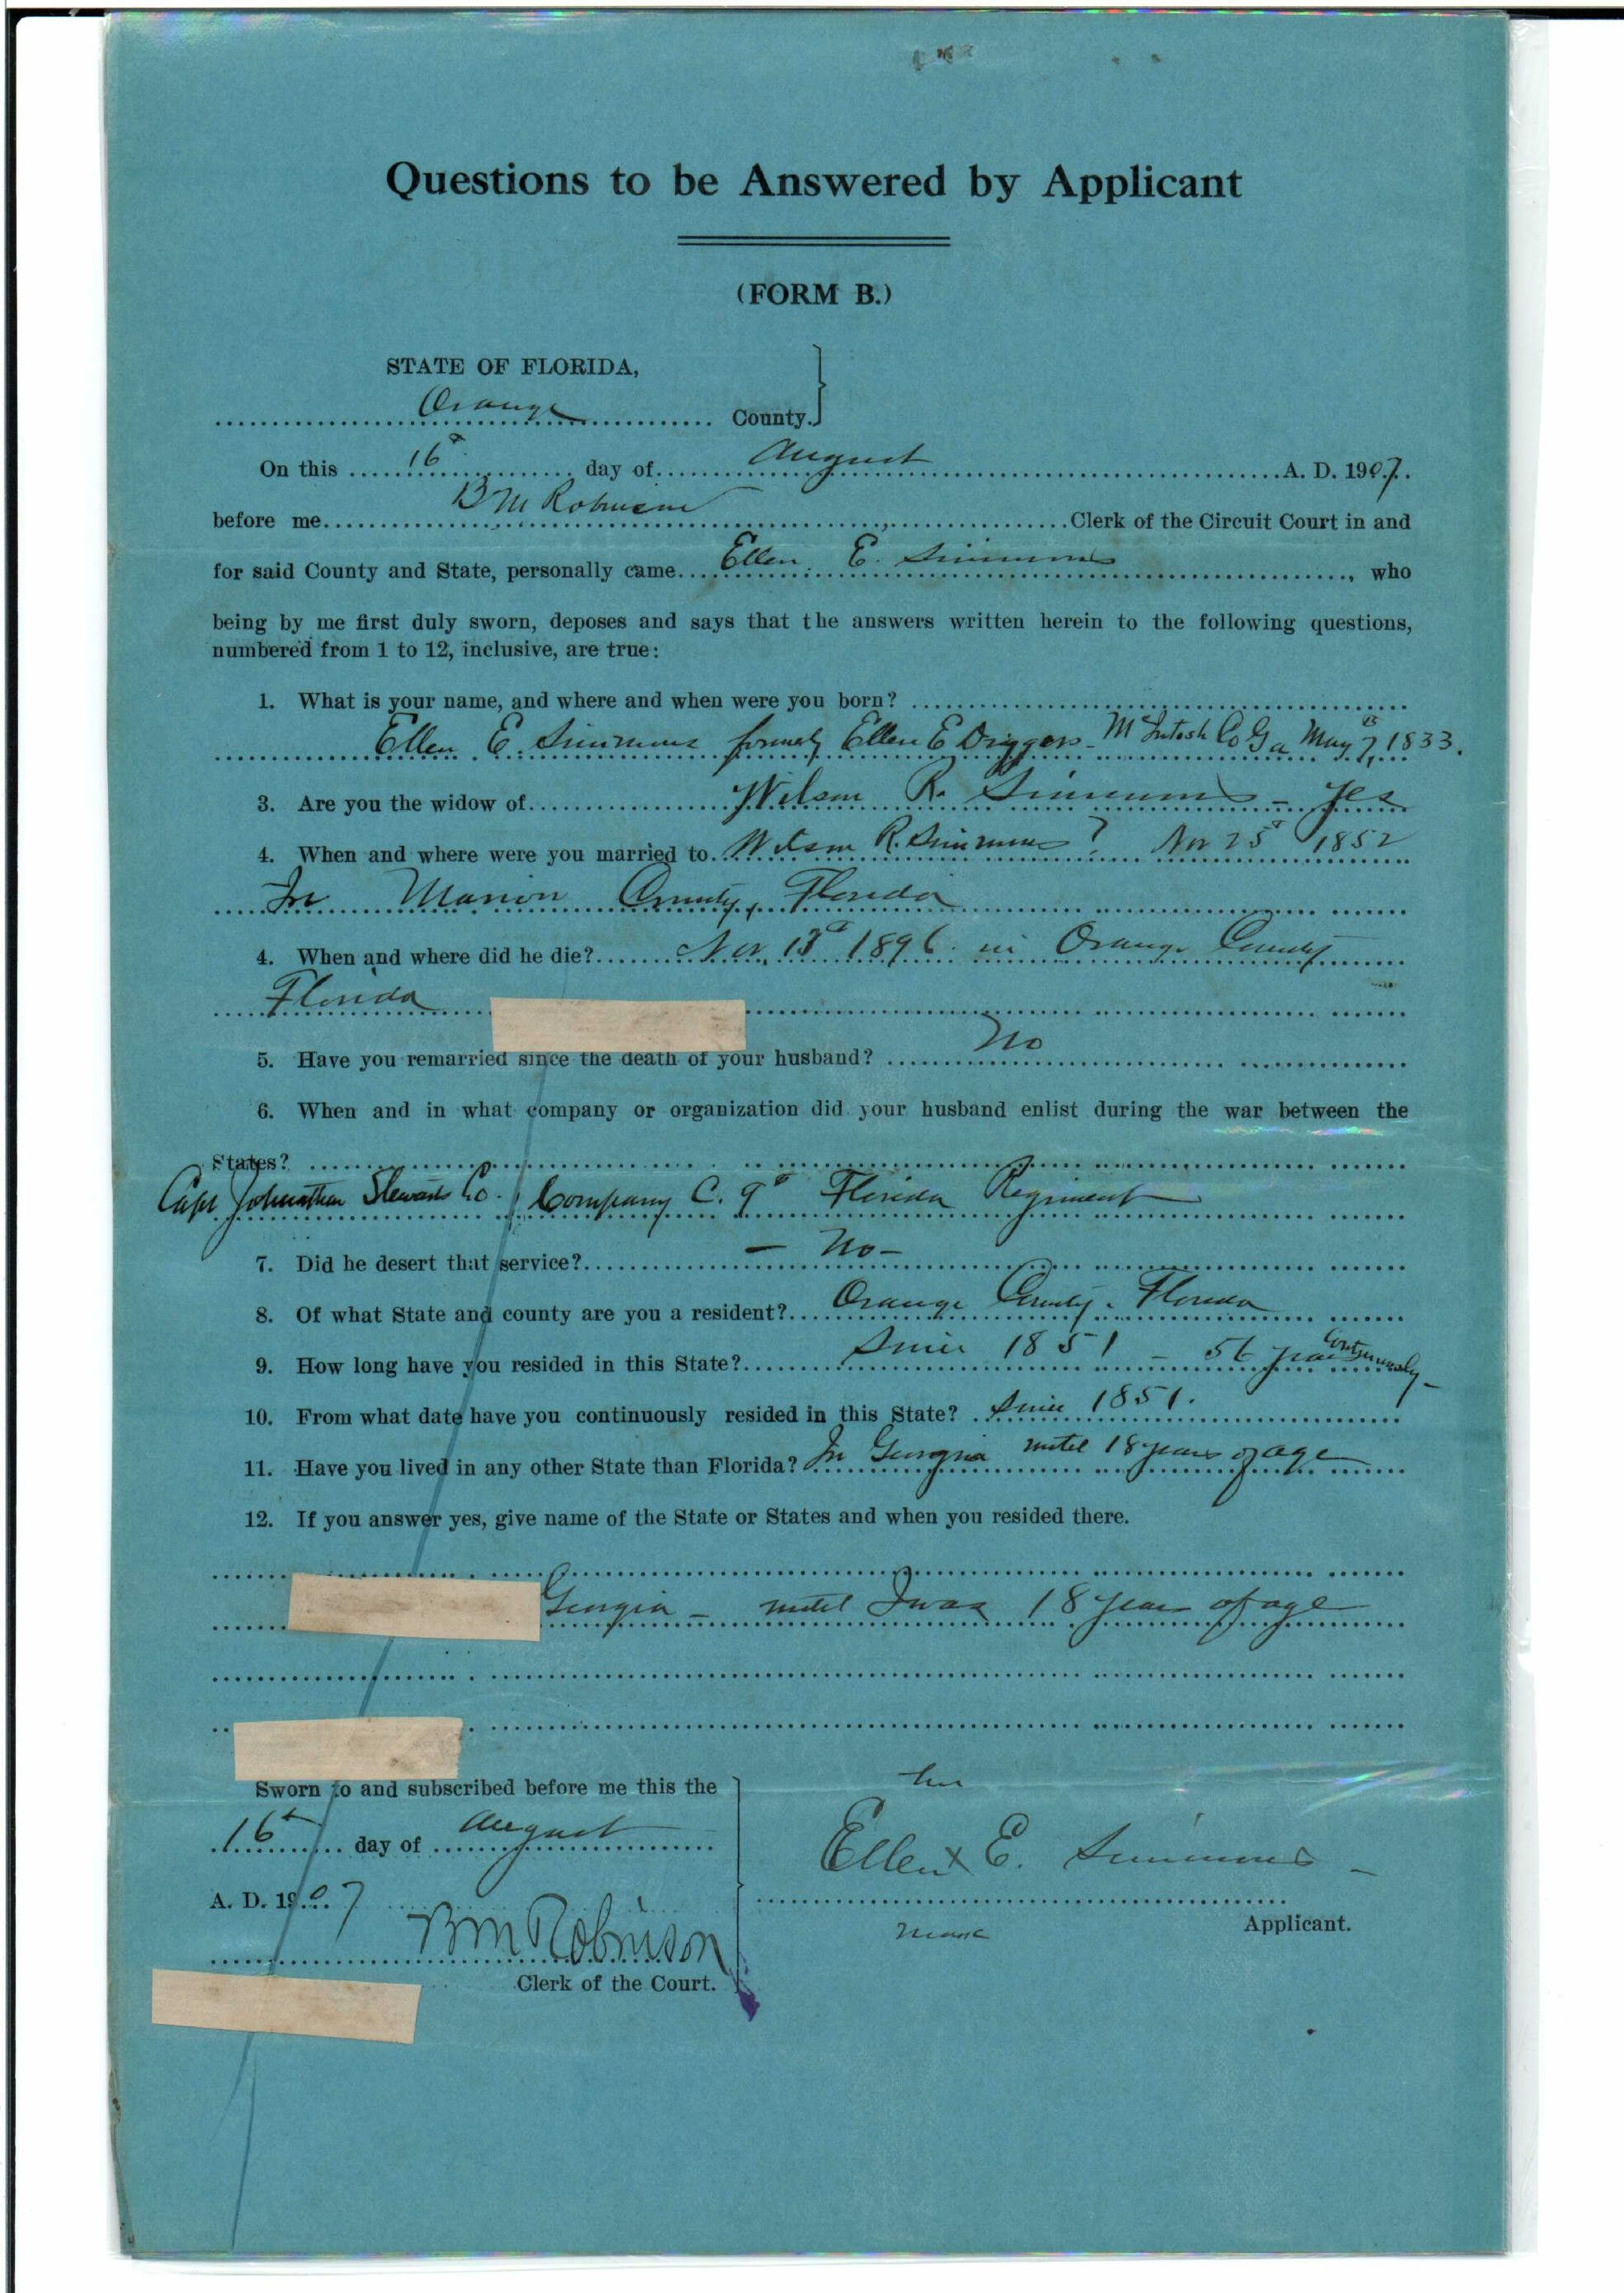 Questions to be Answered by Applicant
(FORM B.)
STATE OF FLORIDA,
Orange County.
On this 16th day of August A. D. 1907.
before me B M Robinson Clerk of the Circuit Court in and
for said County and State, personally came Ellen E. Simmons, who
being by me first duly sworn, deposes and says that the answers written herein to the following questions,
numbered from 1 to 12, inclusive, are true:
1. What is your name, and where and when were you born?
Ellen E. Simmons formerly Ellen E Driggers - McIntosh Co Ga May 7, 1833.
3. Are you the widow of Wilson R. Simmons - Yes
4. When and where were you married to Wilson R. Simmons? Nov 25th 1852
In Marion County, Florida
4. When and where did he die? Nov. 13th 1896 in Orange County
Florida
5. Have you remarried since the death of your husband? No
6. When and in what company or organization did your husband enlist during the war between the
States?
Capt Johnathan Stewarts Co., Company C. 9th Florida Regiment
7. Did he desert that service? - No -
8. Of what State and county are you a resident? Orange County. Florida
9. How long have you resided in this State? Since 1851 - 56 years Continuously -
10. From what date have you continuously resided in this State? Since 1851.
11. Have you lived in any other State than Florida? In Georgia until 18 years of age
12. If you answer yes, give name of the State or States and when you resided there.
Georgia - until I was 18 years of age
Sworn to and subscribed before me this the
16th day of August
A. D. 1907
B M Robinson
Clerk of the Court.
her
Ellen x E. Simmons -
mark
Applicant.